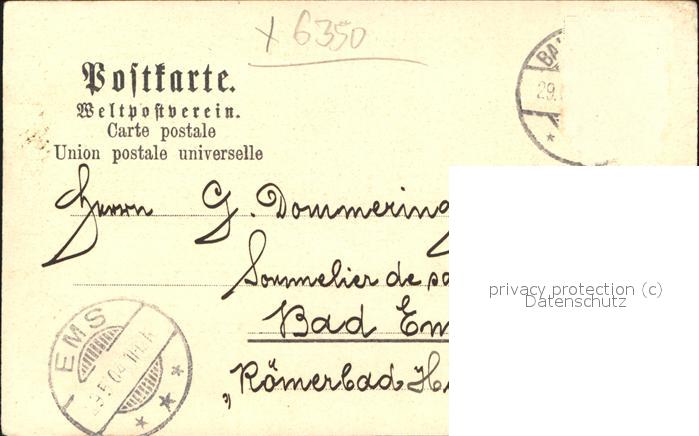 x 6350
Postkarte.
Weltpostverein.
Carte postale
Union postale universelle
BA
29.
Herrn G. Dommering
Sommelier de sa
Bad Em
"Römerbad H
EMS
privacy protection (c)
Datenschutz